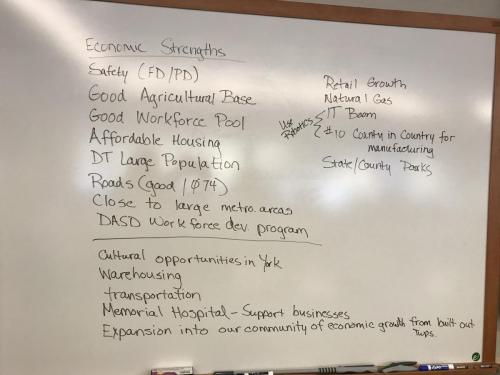 Economic Strengths
Safety (FD/PD)
Good Agricultural Base
Good Workforce Pool
Affordable Housing
DT Large Population
Roads (good / Ø74)
Close to large metro. areas
DASD Workforce dev. program
Cultural opportunities in York
Warehousing
transportation
Memorial Hospital - Support businesses
Expansion into our community of economic growth from built out
Twps.
Retail Growth
Natural Gas
Use
Robotics
IT Boom
#10 County in Country for
manufacturing
State/County Parks